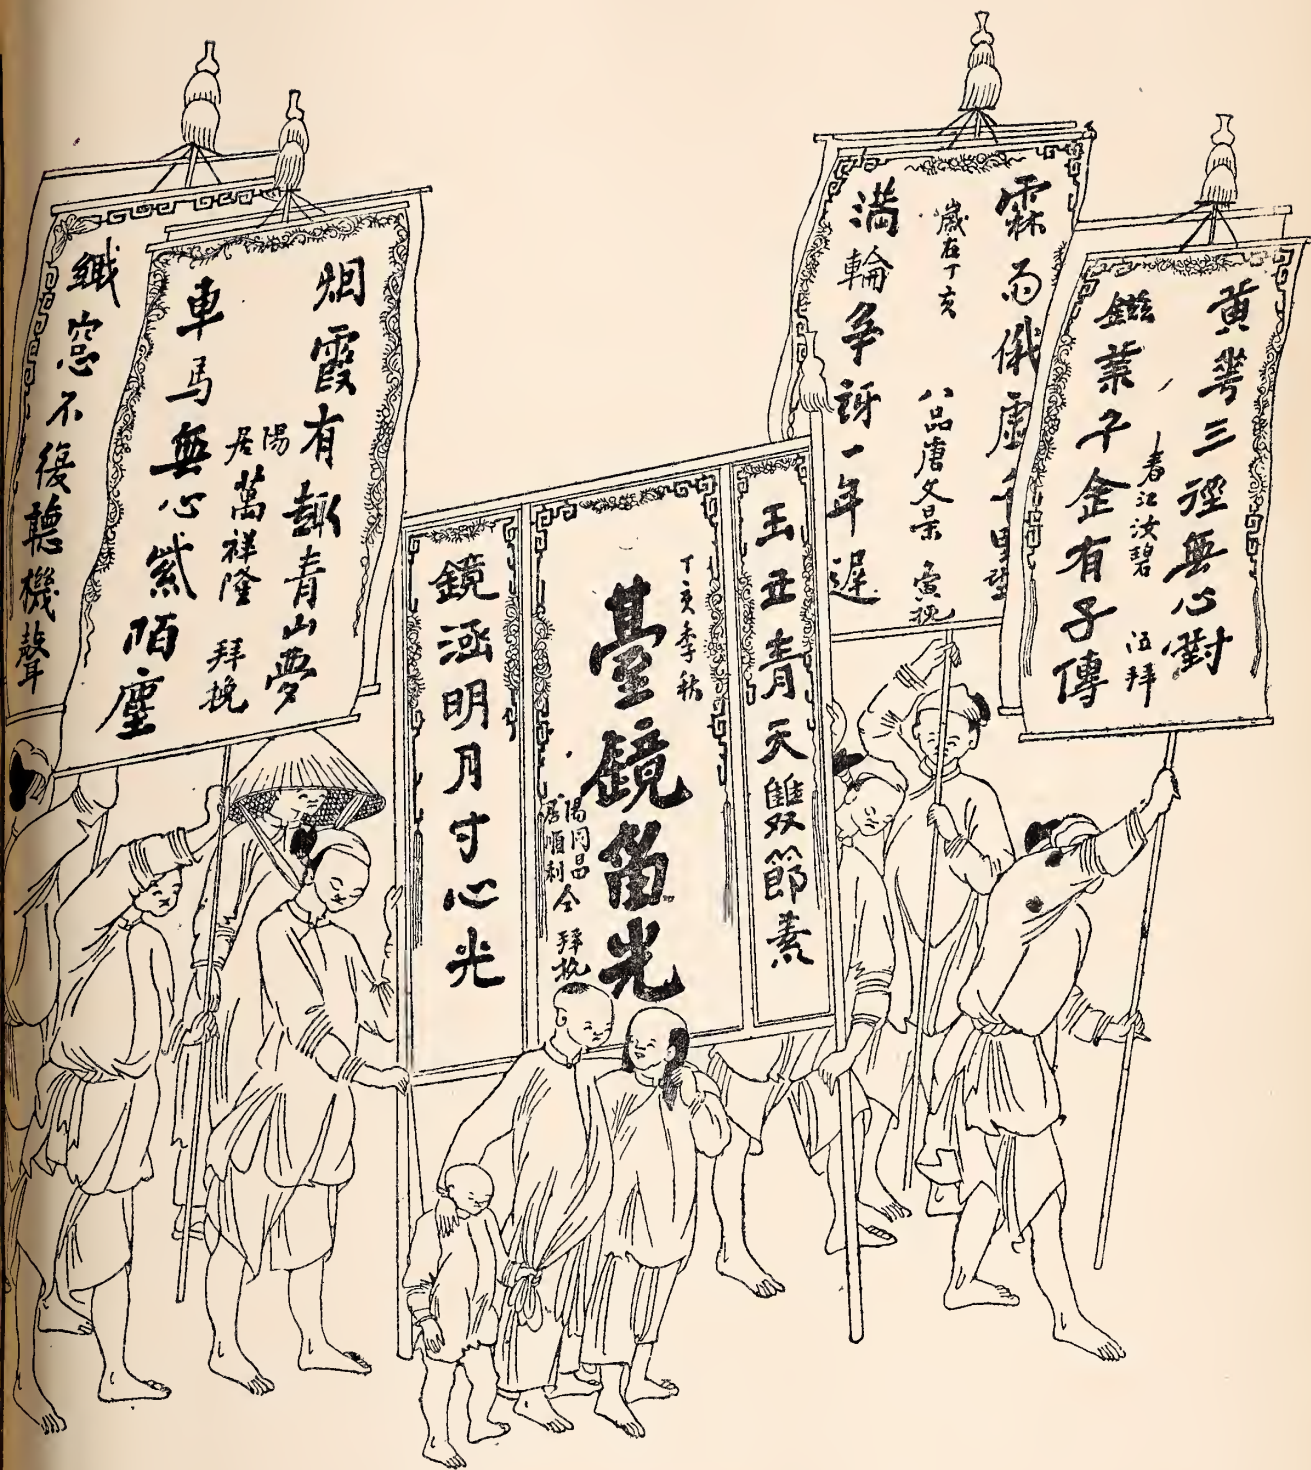 黄三徑無心對
春江汝碧 伍拜
業千金有子傳
霖雨俄虛千里望
歲在丁亥 八品唐文景 寅挽
满輪争訝一年遲
玉青天雙節素
丁亥季秋
臺鏡留光
陽同昌
居順利
仝 拜挽
鏡涵明月寸心光
烟霞有趣青山夢
陽居萬祥隆 拜挽
車馬無心紫陌塵
織窓不復聽機聲